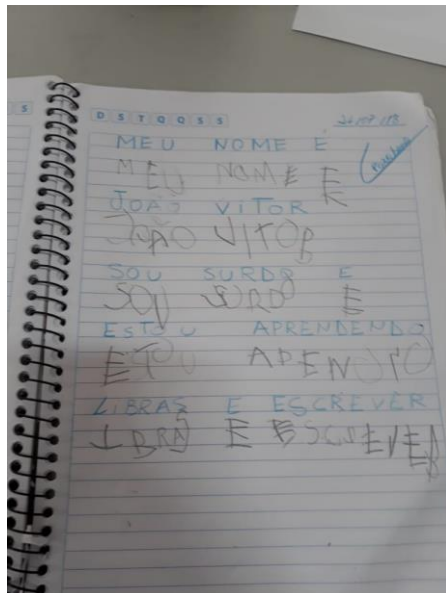 S
D S T Q Q S S
MEU NOME É
MEU NOME E
JOÃO VITOR
JOÃO VITOR
SOU SURDO E
SOU SURDO E
ESTOU APRENDENDO
ETOU APENDTO
LIBRAS E ESCREVER
LBRA E ESCSEVER